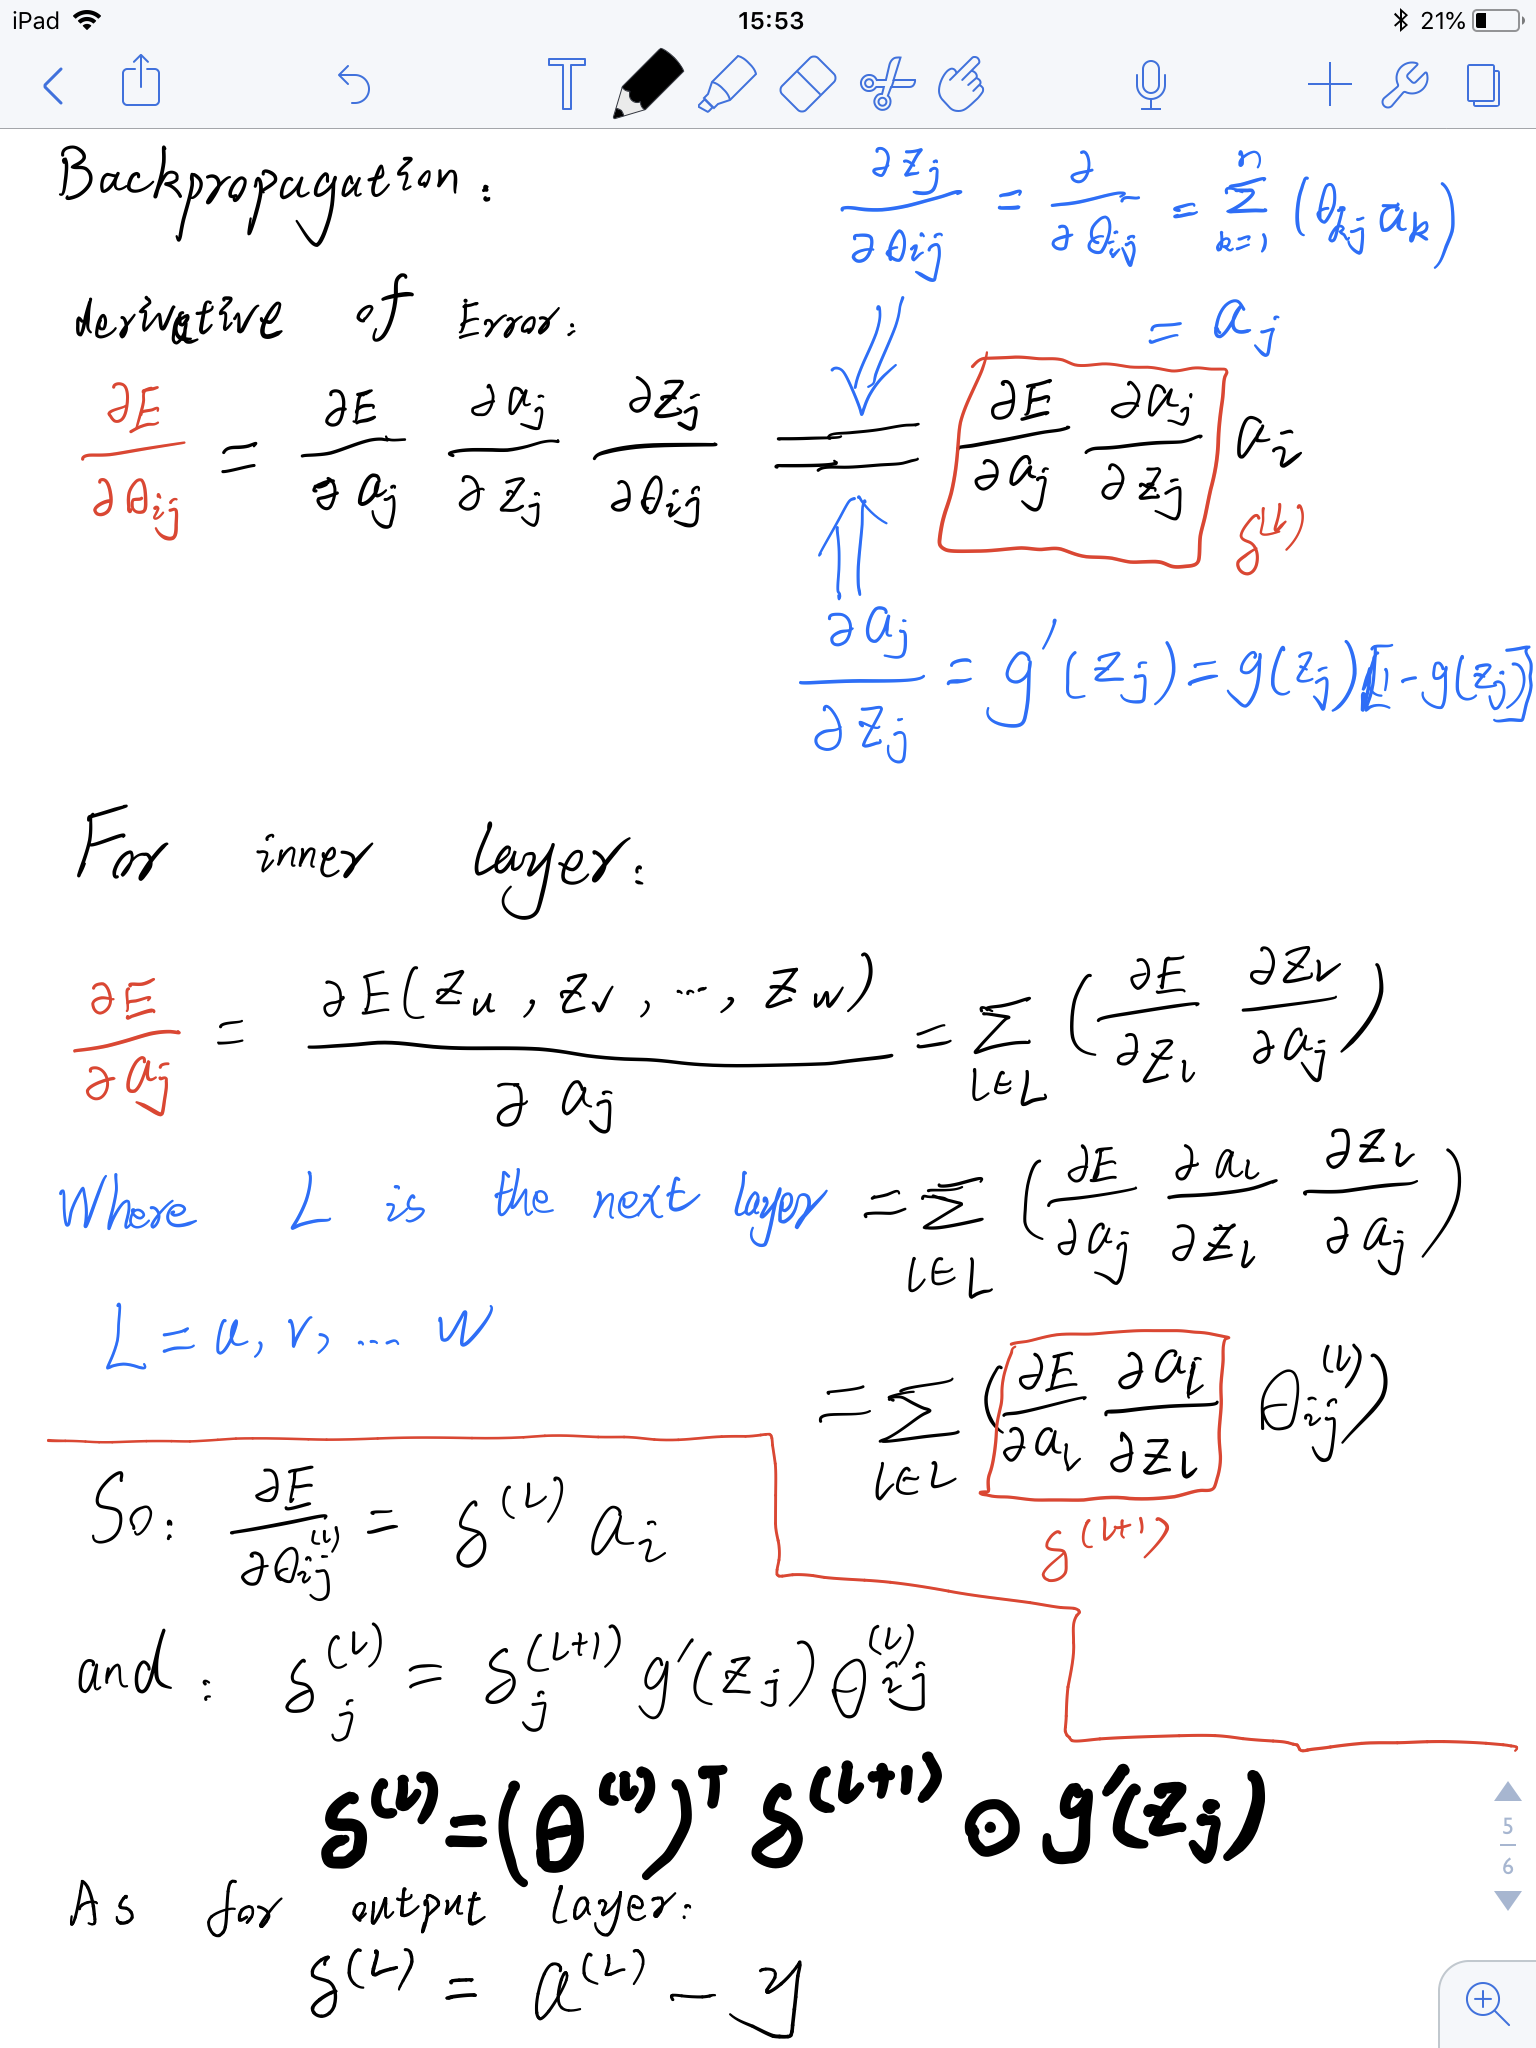 iPad 15:53 21%
T
Backpropagation:
∂zj/∂θij = ∂/∂θij = Σ_{k=1}^{n} (θkj ak)
= aj
derivative of Error:
∂E/∂θij = ∂E/∂aj ∂aj/∂zj ∂zj/∂θij = ∂E/∂aj ∂aj/∂zj ai
δ^(l)
∂aj/∂zj = g'(zj) = g(zj)[1-g(zj)]
For inner layer:
∂E/∂aj = ∂E(zu, zv, ..., zw)/∂aj = Σ_{l∈L} (∂E/∂zl ∂zl/∂aj)
Where L is the next layer = Σ_{l∈L} (∂E/∂aj ∂al/∂zl ∂zl/∂aj)
L = u, v, .... w
= Σ_{l∈L} (∂E/∂al ∂al/∂zl θij^(l))
δ^(l+1)
So: ∂E/∂θij^(l) = δ^(L) ai
and: δj^(l) = δj^(l+1) g'(zj) θij^(l)
δ^(l) = (θ^(l))^T δ^(l+1) ⊙ g'(zj)
As for output layer:
δ^(L) = a^(L) - y
5
6